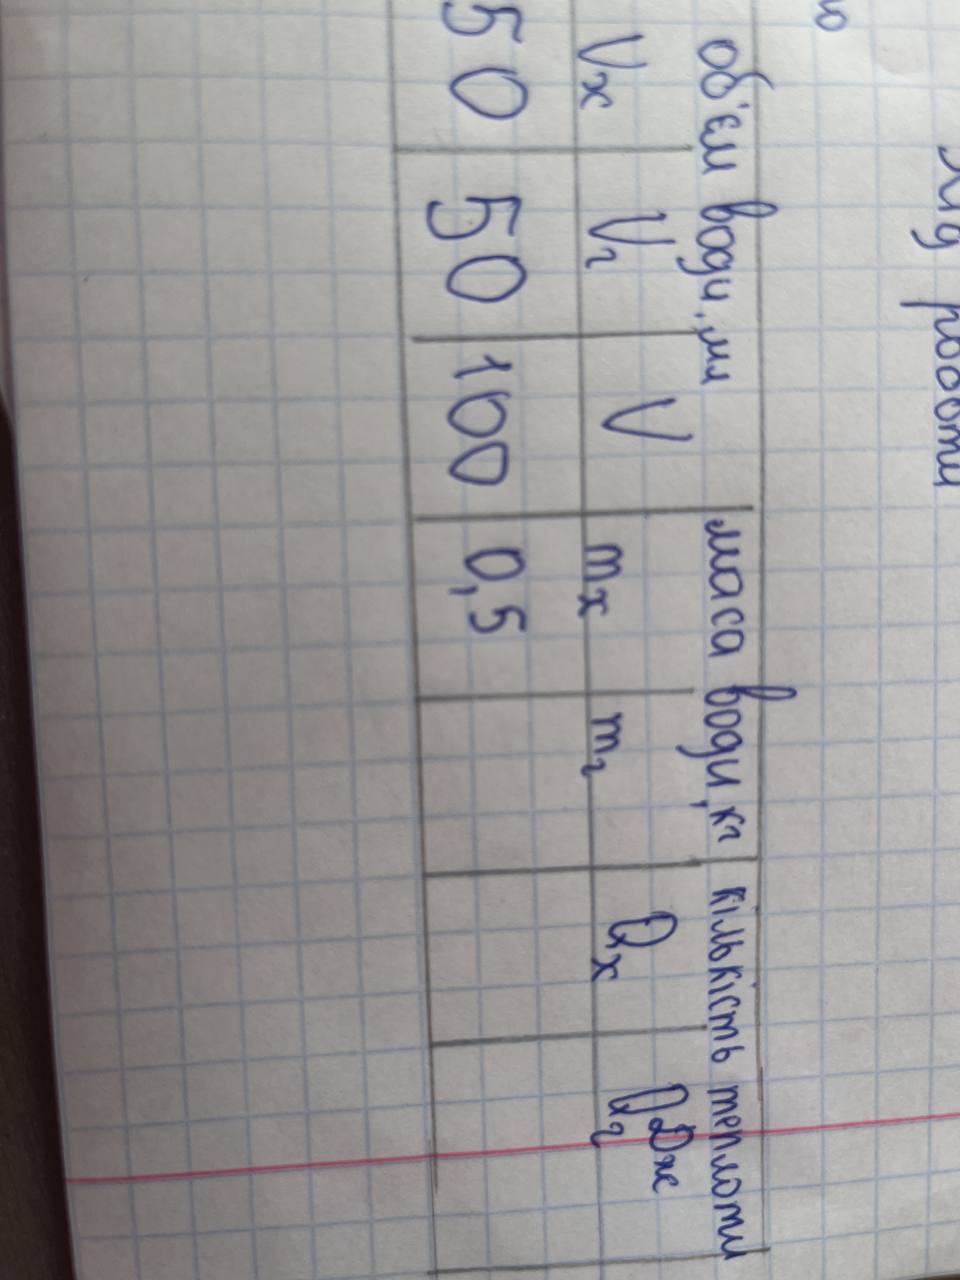 Хід роботи
ю
об'єм води, мл маса води, кг кількість теплоти
Дж
Vх Vг V mх mг Qх Qг
50 50 100 0,5